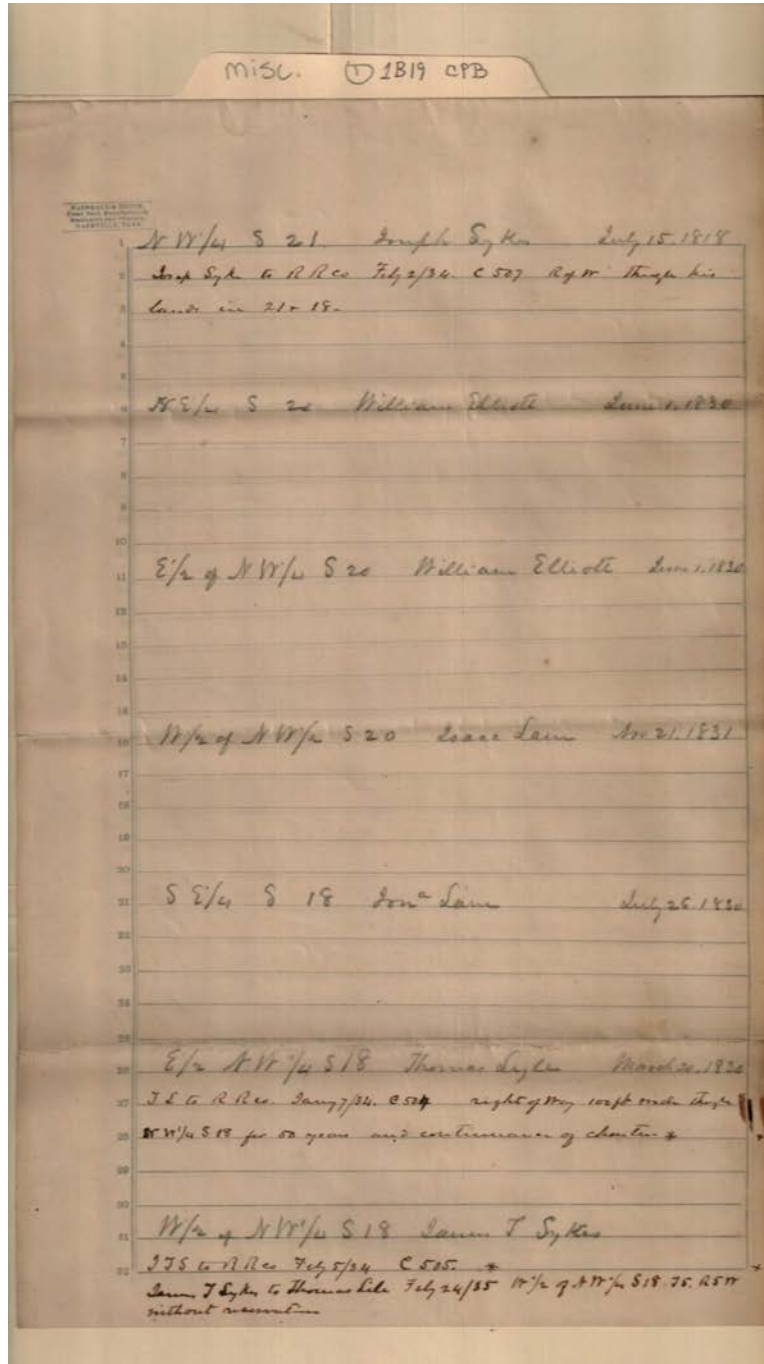 misc. ① 1B19 CPB
MARSHALL & BRUCE,
NASHVILLE, TENN.
1 N W/4 S 21. Joseph Sykes July 15. 1818
2 Josep Syke to R R Co Feby 2/34. C 507 R of W through his
3 lands in 21 + 18.
4
5
6 N E/4 S 20 William Elliott June 1. 1830
7
8
9
10
11 E/2 of N W/4 S 20 William Elliott June 1. 1830
12
13
14
15
16 W/2 of N W/4 S 20 Isaac Lane Nov 21. 1831
17
18
19
20
21 S E/4 S 18 Jonª Lane July 26. 1830
22
23
24
25
26 E/2 N W/4 S 18 Thomas Lyle March 20. 1830
27 T L to R R Co. Jany 7/34. C 504 right of way 100 ft wide through
28 N W/4 S 18 for 50 years and continuance of charter *
29
30
31 W/2 of N W/4 S 18 James T Sykes
32 J T S to R R Co Feby 5/34 C 505. *
James T Sykes to Thomas Lile Feby 24/35 W/2 of N W/4 S 18. T5. R5W
without reservation